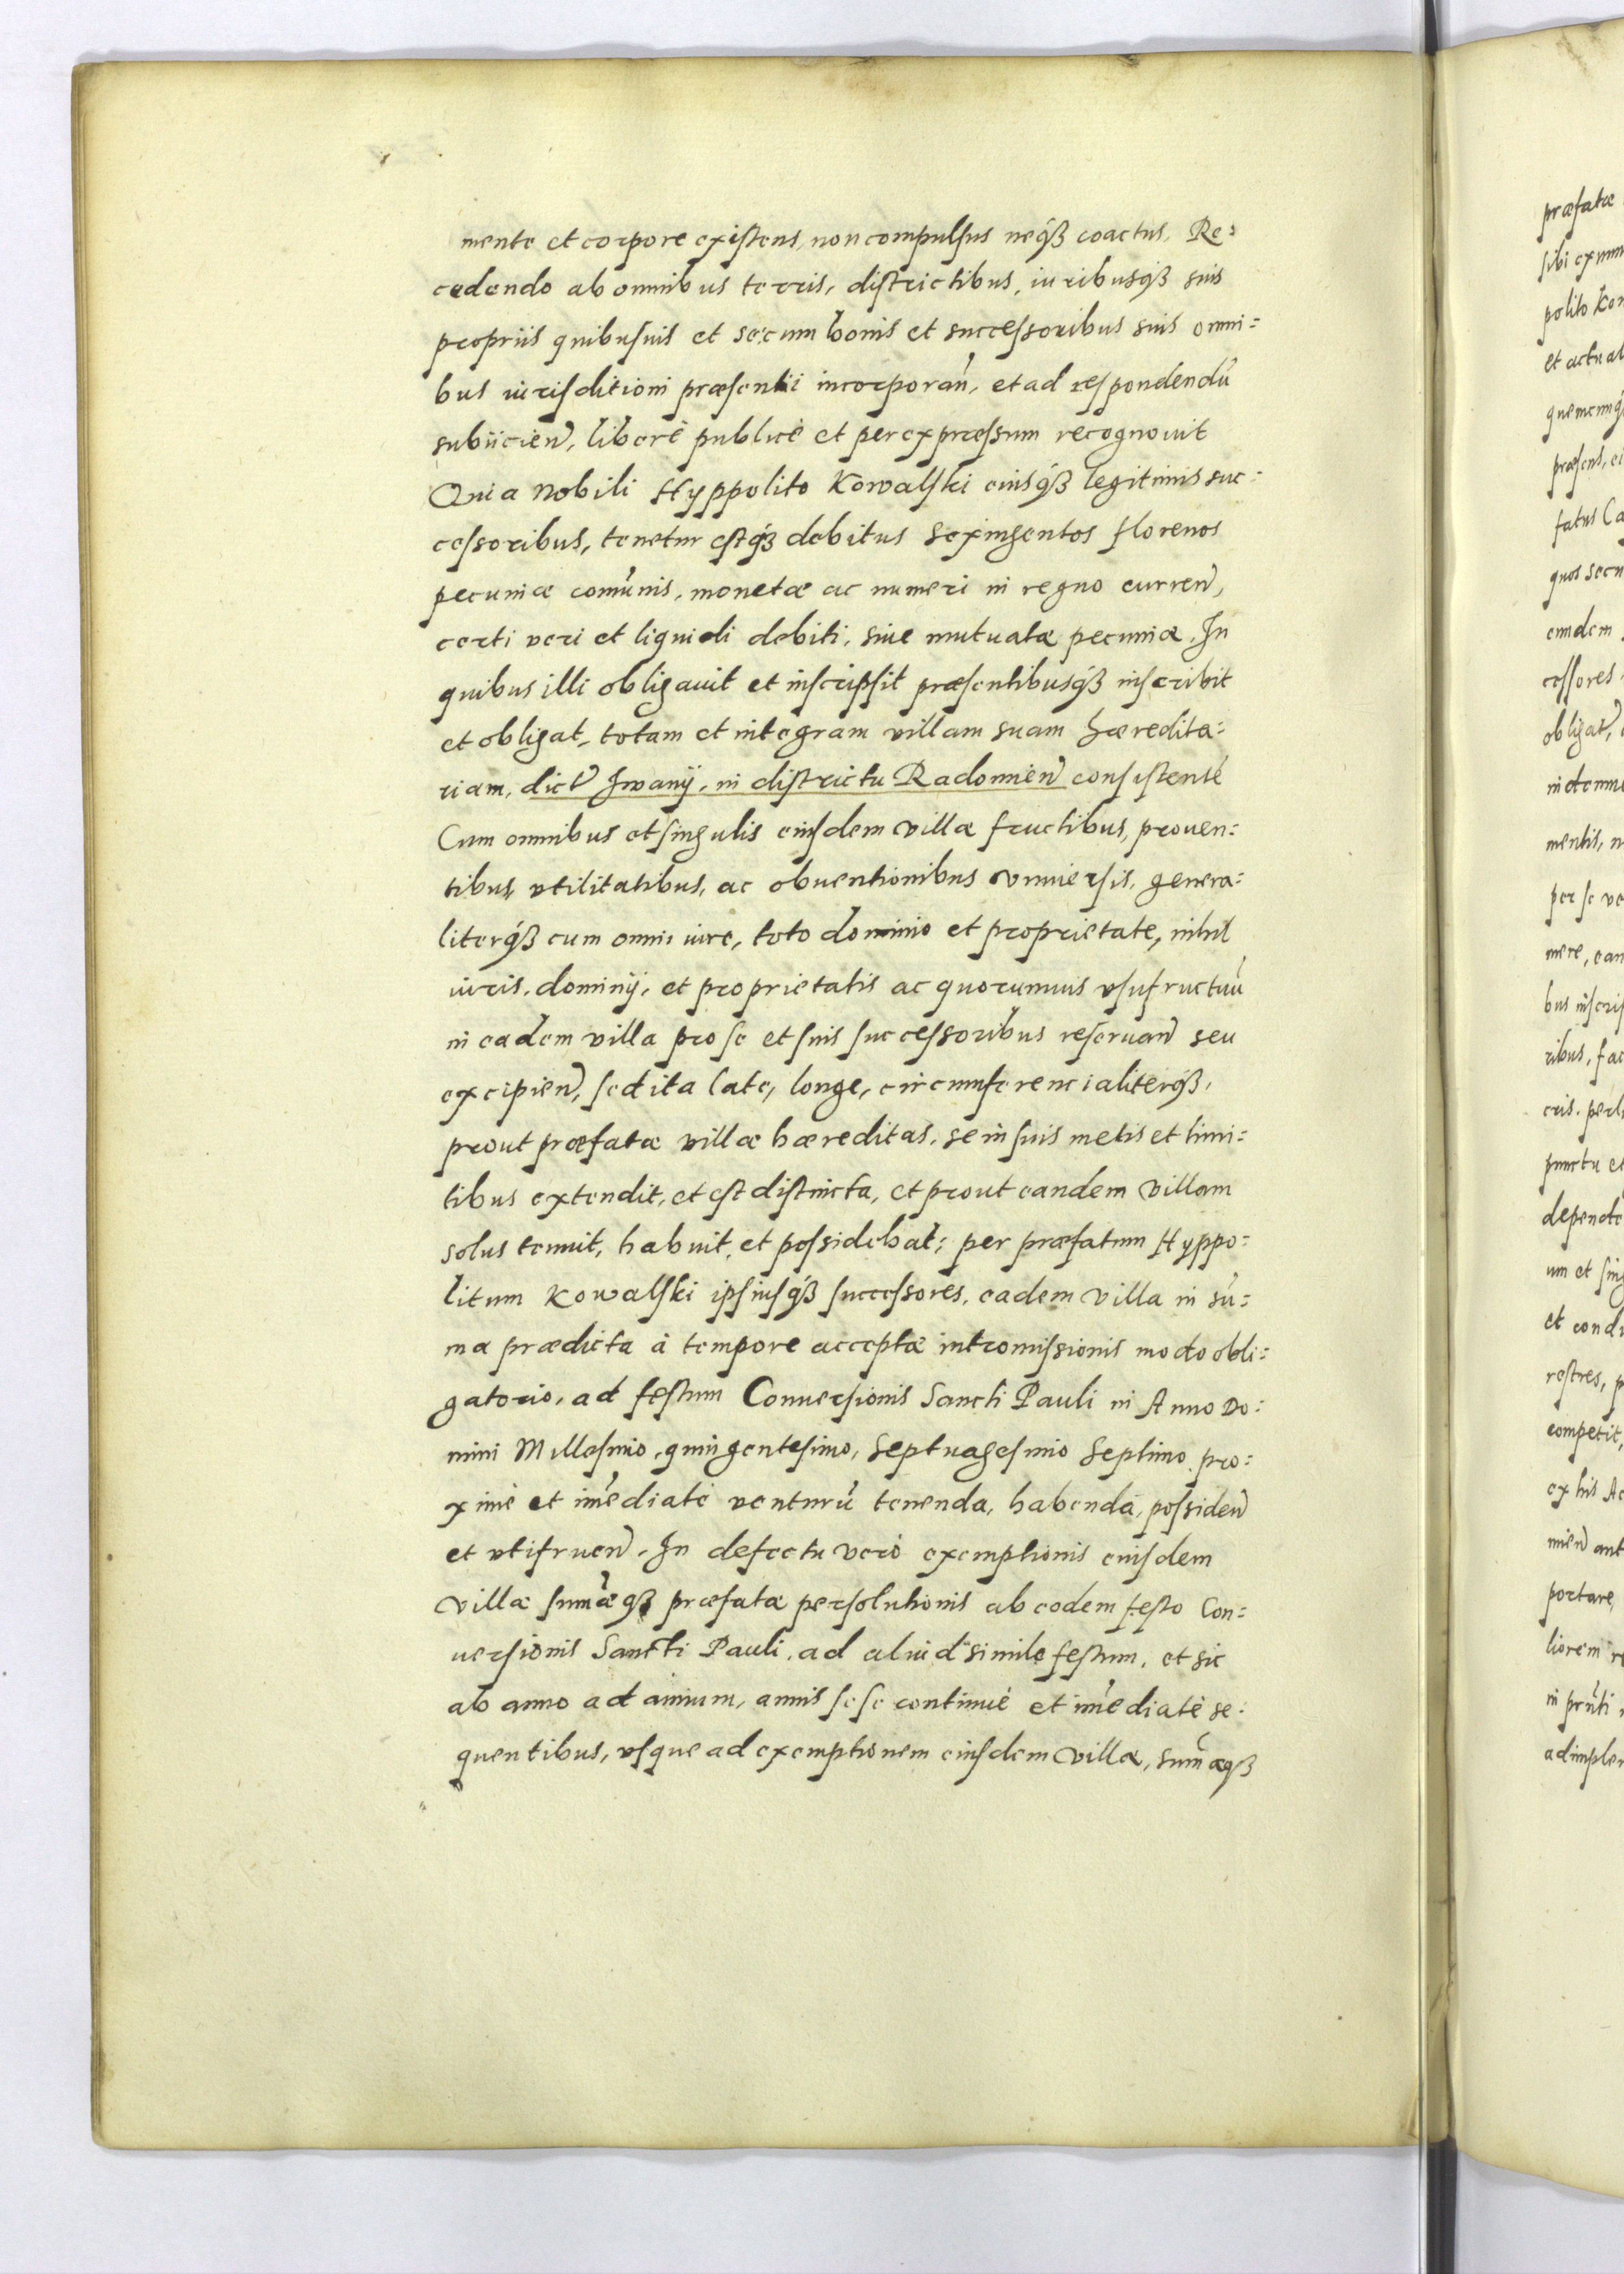 mente et corpore existens, non compulsus neq́ꝫ coactus, Re:
cedendo ab omnibus terris, districtibus, iuribusq́ꝫ suis
propriis quibusuis et secum bonis et successoribus suis omni:
bus iurisditioni præsentii incorporan̄, et ad respondendū
subiicien̄, liberè publicè et per expressum recognouit
Quia Nobili Hyppolito Kowalski eiusq́ꝫ legitimis suc:
cessoribus, tenetur estq́ꝫ debitus sexingentos florenos
pecuniæ com̄unis, monetæ ac numeri in regno curren̄,
certi veri et liquidi debiti, siue mutuatæ pecuniæ. In
quibus illi obligauit et inscripsit præsentibusq́ꝫ inscribit
et obligat, totam et integram villam suam hæredita:
riam, dict̄ Iwanÿ, in districtu Radomien̄ consistensē
Cum omnibus et singulis eiusdem villæ fructibus, prouen:
tibus, vtilitatibus, ac obuentionibus vniuersis, genera:
literq́ꝫ cum omni iure, toto dominio et proprietate, nihil
iuris, dominÿ, et proprietatis ac quorumuis vsufructuū
in eadem villa pro se et suis successoribus reseruan̄ seu
excipien̄, sed ita late, longe, circumferencialiterq́ꝫ,
prout præfatæ villæ hæreditas, se in suis metis et limi:
tibus extendit, et est distincta, et prout eandem villam
solus tenuit, habuit, et possidebat; per præfatum Hyppo:
litum Kowalski ipsiusq́ꝫ successores, eadem villa in sū:
ma prædicta à tempore acceptæ intromissionis modo obli:
gatorio, ad festum Conuersionis Sancti Pauli in Anno Do:
mini Millesimo, quingentesimo, Septuagesimo Septimo pro:
ximè et im̄ediatè venturū tenenda, habenda, possiden̄
et vtifruen̄. In defectu verò exemptionis eiusdem
villæ sum̄æqꝫ præfatæ persolutionis ab eodem festo Con:
uersionis Sancti Pauli, ad aliud simile festum, et sic
ab anno ad annum, annis sese continuè et im̄ediatè se:
quentibus, vsque ad exemptionem eiusdem villæ, sum̄æqꝫ
præfatæ
polito
et
mentis,
per se
mere,
ribus,
portare,